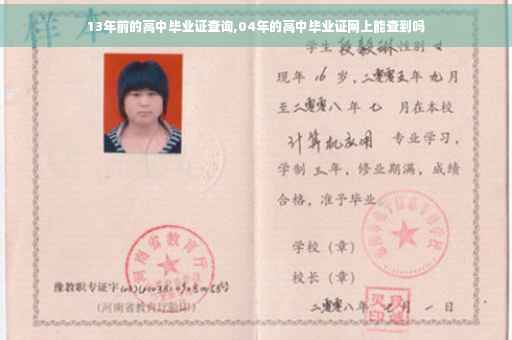 样本
13年前的高中毕业证查询,04年的高中毕业证网上能查到吗
学生 段毅琳 性别 女
现年 16 岁,二零零五年 九月
至二零零八年 七 月在本校
计算机应用 专业学习,
学制 三 年,修业期满,成绩
合格,准予毕业
学校(章)
校长(章)
二零零八年 七 月 一 日
河南省教育厅
豫教职专证字
(河南省教育厅验印)